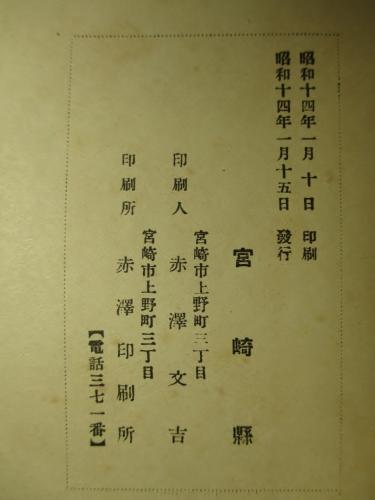 昭和十四年一月十日 印刷
昭和十四年一月十五日 發行
宮崎縣
宮崎市上野町三丁目
印刷人 赤澤文吉
宮崎市上野町三丁目
印刷所 赤澤印刷所
【電話三七一番】